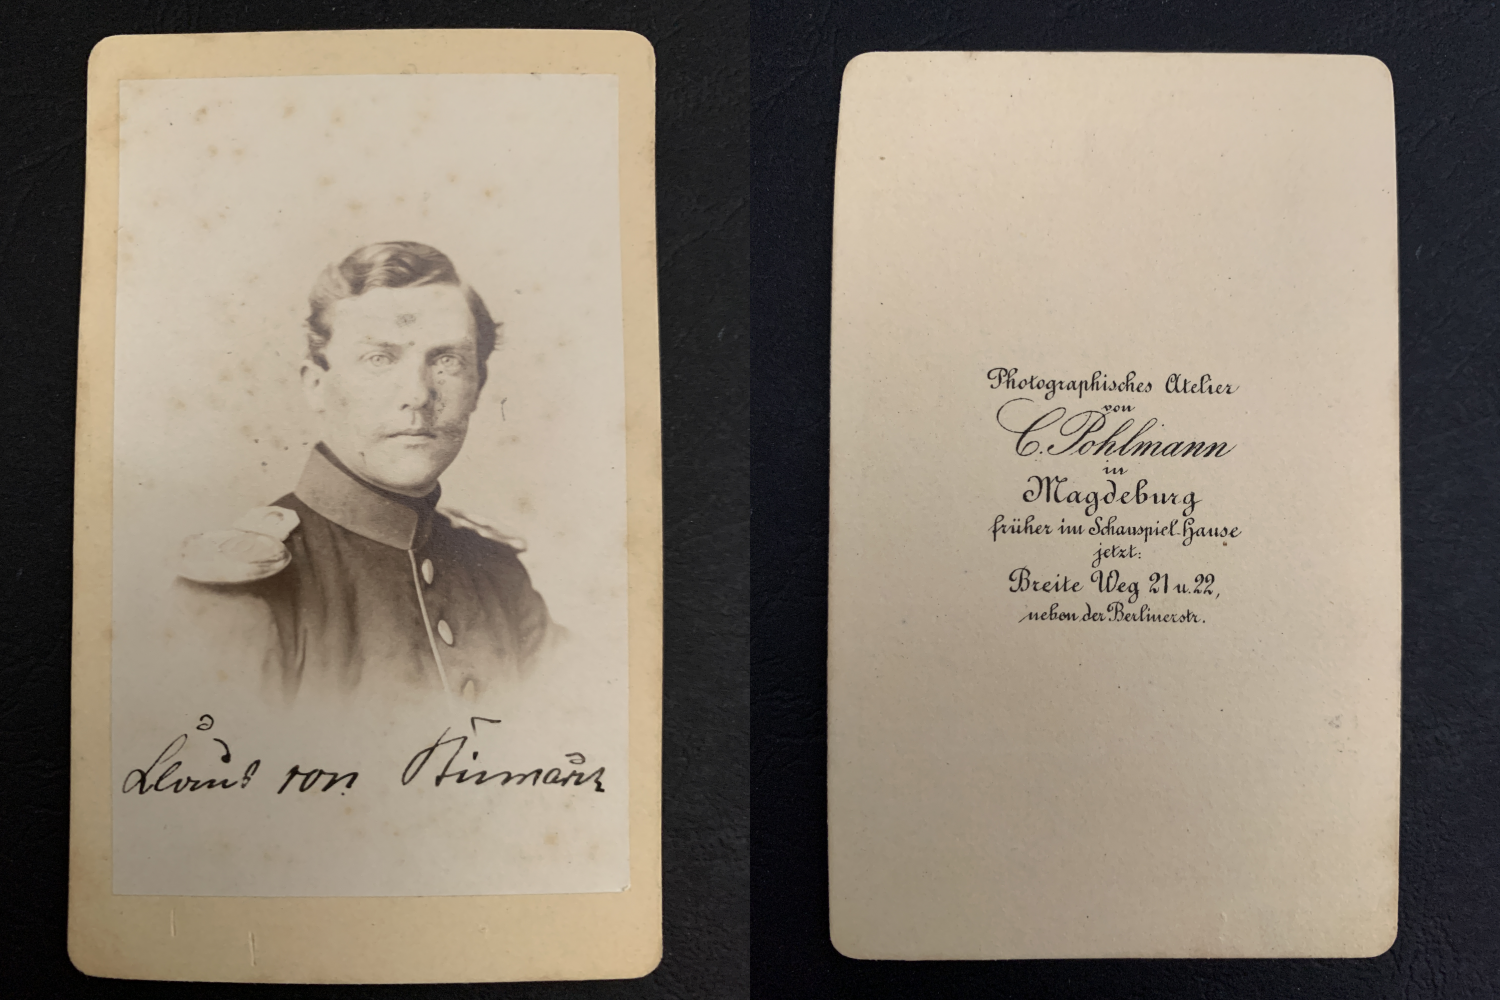 Claus von Bismarck
Photographisches Atelier
von
C. Pohlmann
in
Magdeburg
früher im Schauspiel-Hause
jetzt:
Breite Weg 21 u. 22,
neben der Berlinerstr.